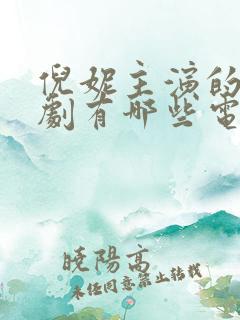 倪妮主演的
劇有哪些電
曉陽高
未任同意禁止转载